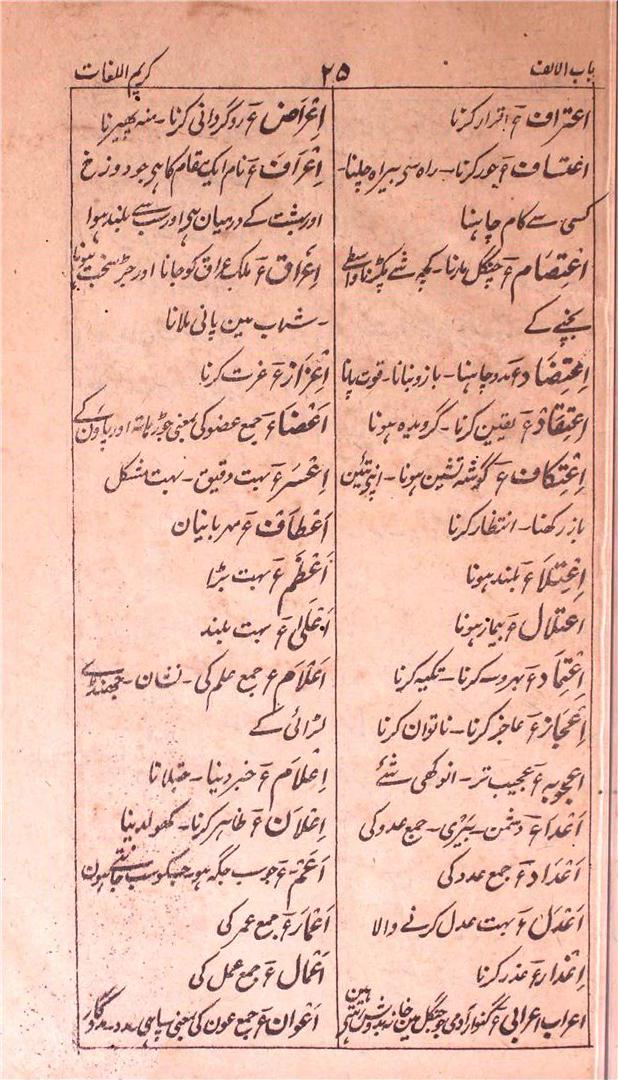 باب الالف ۲۵ کریم اللغات
اعتراف ع اقرار کرنا
اعتساف ع جور کرنا - راہ سی بیراہ چلنا -
کسی سے کام چاہنا
اعْتِصَام ع چنگل مارنا - کچھ شے پکڑنا واسطے
بچنے کے
اِعْتِضَاد ع مدد چاہنا - بازو بنانا - قوت پانا
اعْتِقَاد ع یقین کرنا - گرویدہ ہونا
اِعْتِکاف ع گوشہ نشین ہونا - اپنی تئین
باز رکھنا - انتظار کرنا
اِعْتِلَا ع بلند ہونا
اعتلال ع بیمار ہونا
اِعْتِمَاد ع بہروسہ کرنا - تکیہ کرنا
اِعْجَاز ع عاجز کرنا - ناتوان کرنا
اعجوبہ ع عجیب تر - انوکھی شئے
اَعْدَا ع دشمن - بیَری - جمع عدو کی
اَعْدَاد ع جمع عدد کی
اَعْدَل ع بہت عدل کرنے والا
اِعْذار ع عذر کرنا
اعراب اعرابی ع گنوار آدمی جو جنگل مین خانہ بدوش رہتی ہین
اِعْرَاض ع روگردانی کرنا - منہ پھیرنا
اِعْرَاف ع نام ایک مقام کا ہی جو دوزخ
اور بہشت کے درمیان ہی اور سب سے بلند ہوا
اِعْرَاق ع ملک عراق کو جانا اور جڑ سخت ہونا
- شراب مین پانی ملانا
اِعْزَاز ع عزت کرنا
اَعْضَا ع جمع عضو کی یعنی جوڑ ہاتھ اور پاؤن کے
اِعْسَر ع بہت دقیق - بہت مشکل
اَعْطَاف ع مہربانیان
اَعْظَم ع بہت بڑا
اَعْلَیٰ ع بہت بلند
اَعْلَام ع جمع علم کی - نشان - جھنڈے
لڑائی کے
اِعْلَام ع خبر دینا - جتلانا
اِعْلَان ع ظاہر کرنا - کھولدینا
اَعَمّ ع جو سب جگہ ہو جسکو سب جانتے ہون
اَعْمَار ع جمع عمر کی
اَعْمَال ع جمع عمل کی
اَعْوَان ع جمع عون کی یعنی سپاہی مددگار